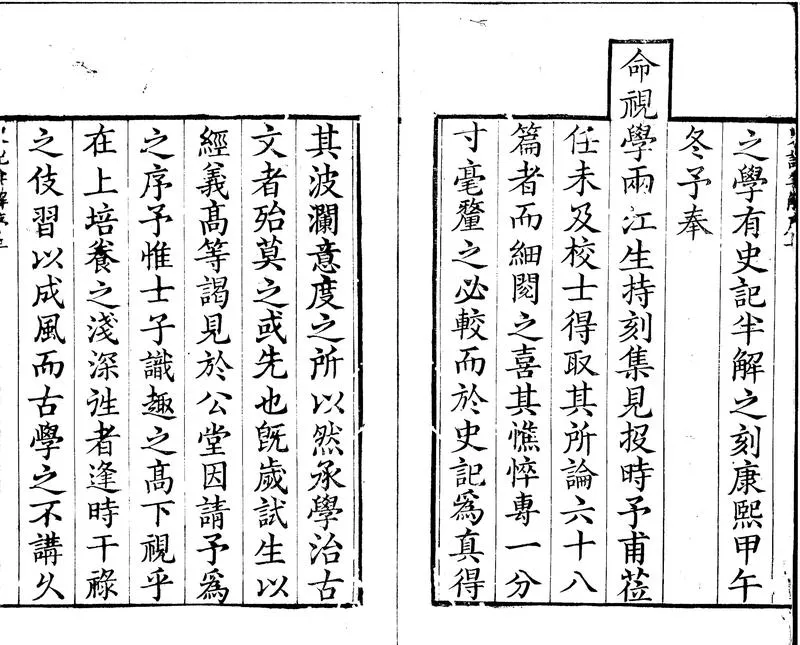 之學有史記半解之刻康熙甲午
冬予奉
命視學兩江生持刻集見投時予甫蒞
任未及校士得取其所論六十八
篇者而細閱之喜其憔悴專一分
寸毫釐之必較而於史記爲真得
其波瀾意度之所以然承學治古
文者殆莫之或先也旣歲試生以
經義高等謁見於公堂因請予爲
之序予惟士子識趣之高下視乎
在上培養之淺深徃者逢時干祿
之伎習以成風而古學之不講久